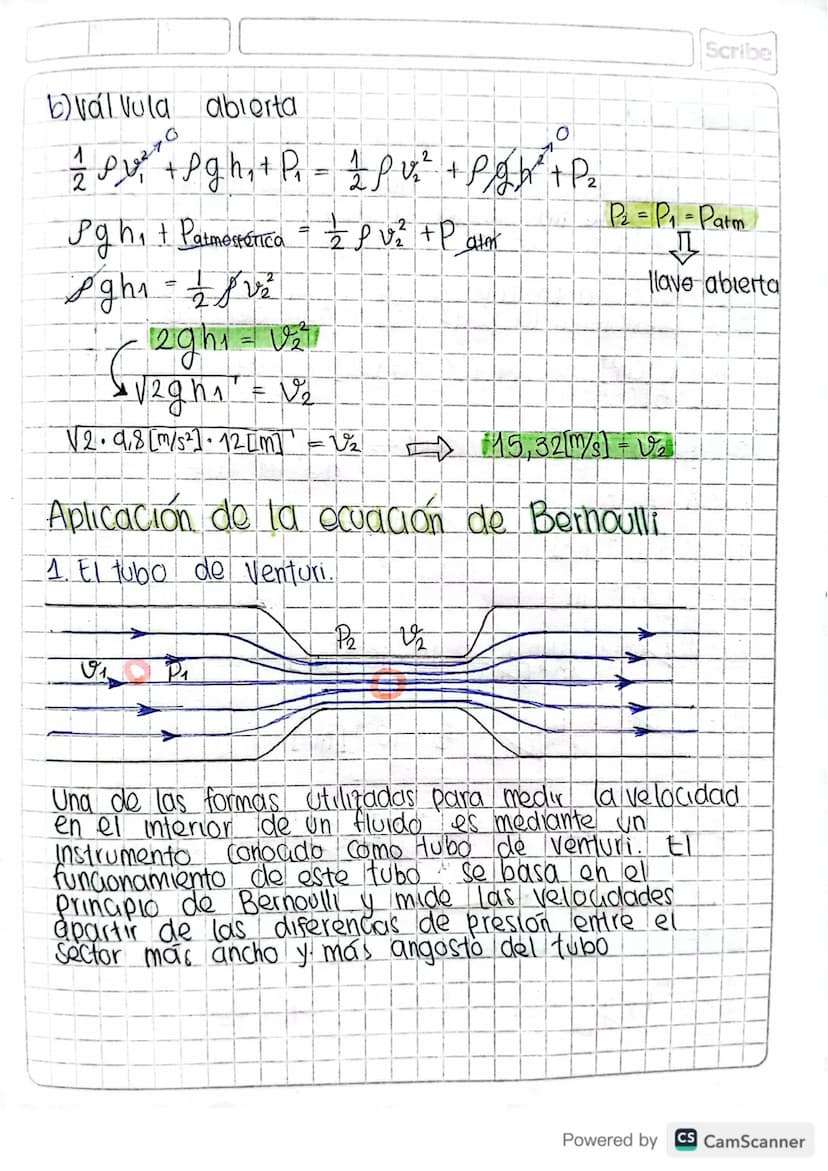 Scribe
b) Válvula abierta
½ ρ v₁² ↗0 + ρ g h₁ + P₁ = ½ ρ v₂² + ρ g h² ↗0 + P₂
ρ g h₁ + Patmosférica = ½ ρ v₂² + P atm
P₂ = P₁ = Patm
⇓
llave abierta
ρ g h₁ = ½ ρ v₂²
2 g h₁ = v₂²
√2 g h₁ = v₂
√2 · 9,8 [m/s²] · 12 [m] = v₂ ⇒ 15,32 [m/s] = v₂
Aplicación de la ecuación de Bernoulli
1. El tubo de Venturi.
P₂ v₂
v₁ P₁
Una de las formas utilizadas para medir la velocidad
en el interior de un fluido es mediante un
instrumento conocido como tubo de venturi. El
funcionamiento de este tubo se basa en el
principio de Bernoulli y mide las velocidades
apartir de las diferencias de presión entre el
sector más ancho y más angosto del tubo
Powered by CS CamScanner